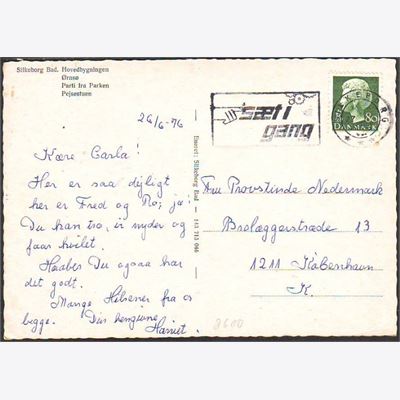 Silkeborg Bad. Hovedbygningen
Ørnsø
Parti fra Parken
Pejsestuen
26/6-76
Kære Carla!
Her er saa dejligt
her er Fred og Ro, ja!
Du kan tro, vi nyder og
faar hvilet.
Haaber Du ogsaa har
det godt.
Mange Hilsener fra os
begge. Din hengivne
Harriet.
Eneret: Silkeborg Bad — 143 713 046
sæt i
gang
80
DANMARK
Fru Provstinde Nedermark
Brolæggerstræde 13
1211 København
K.
8600